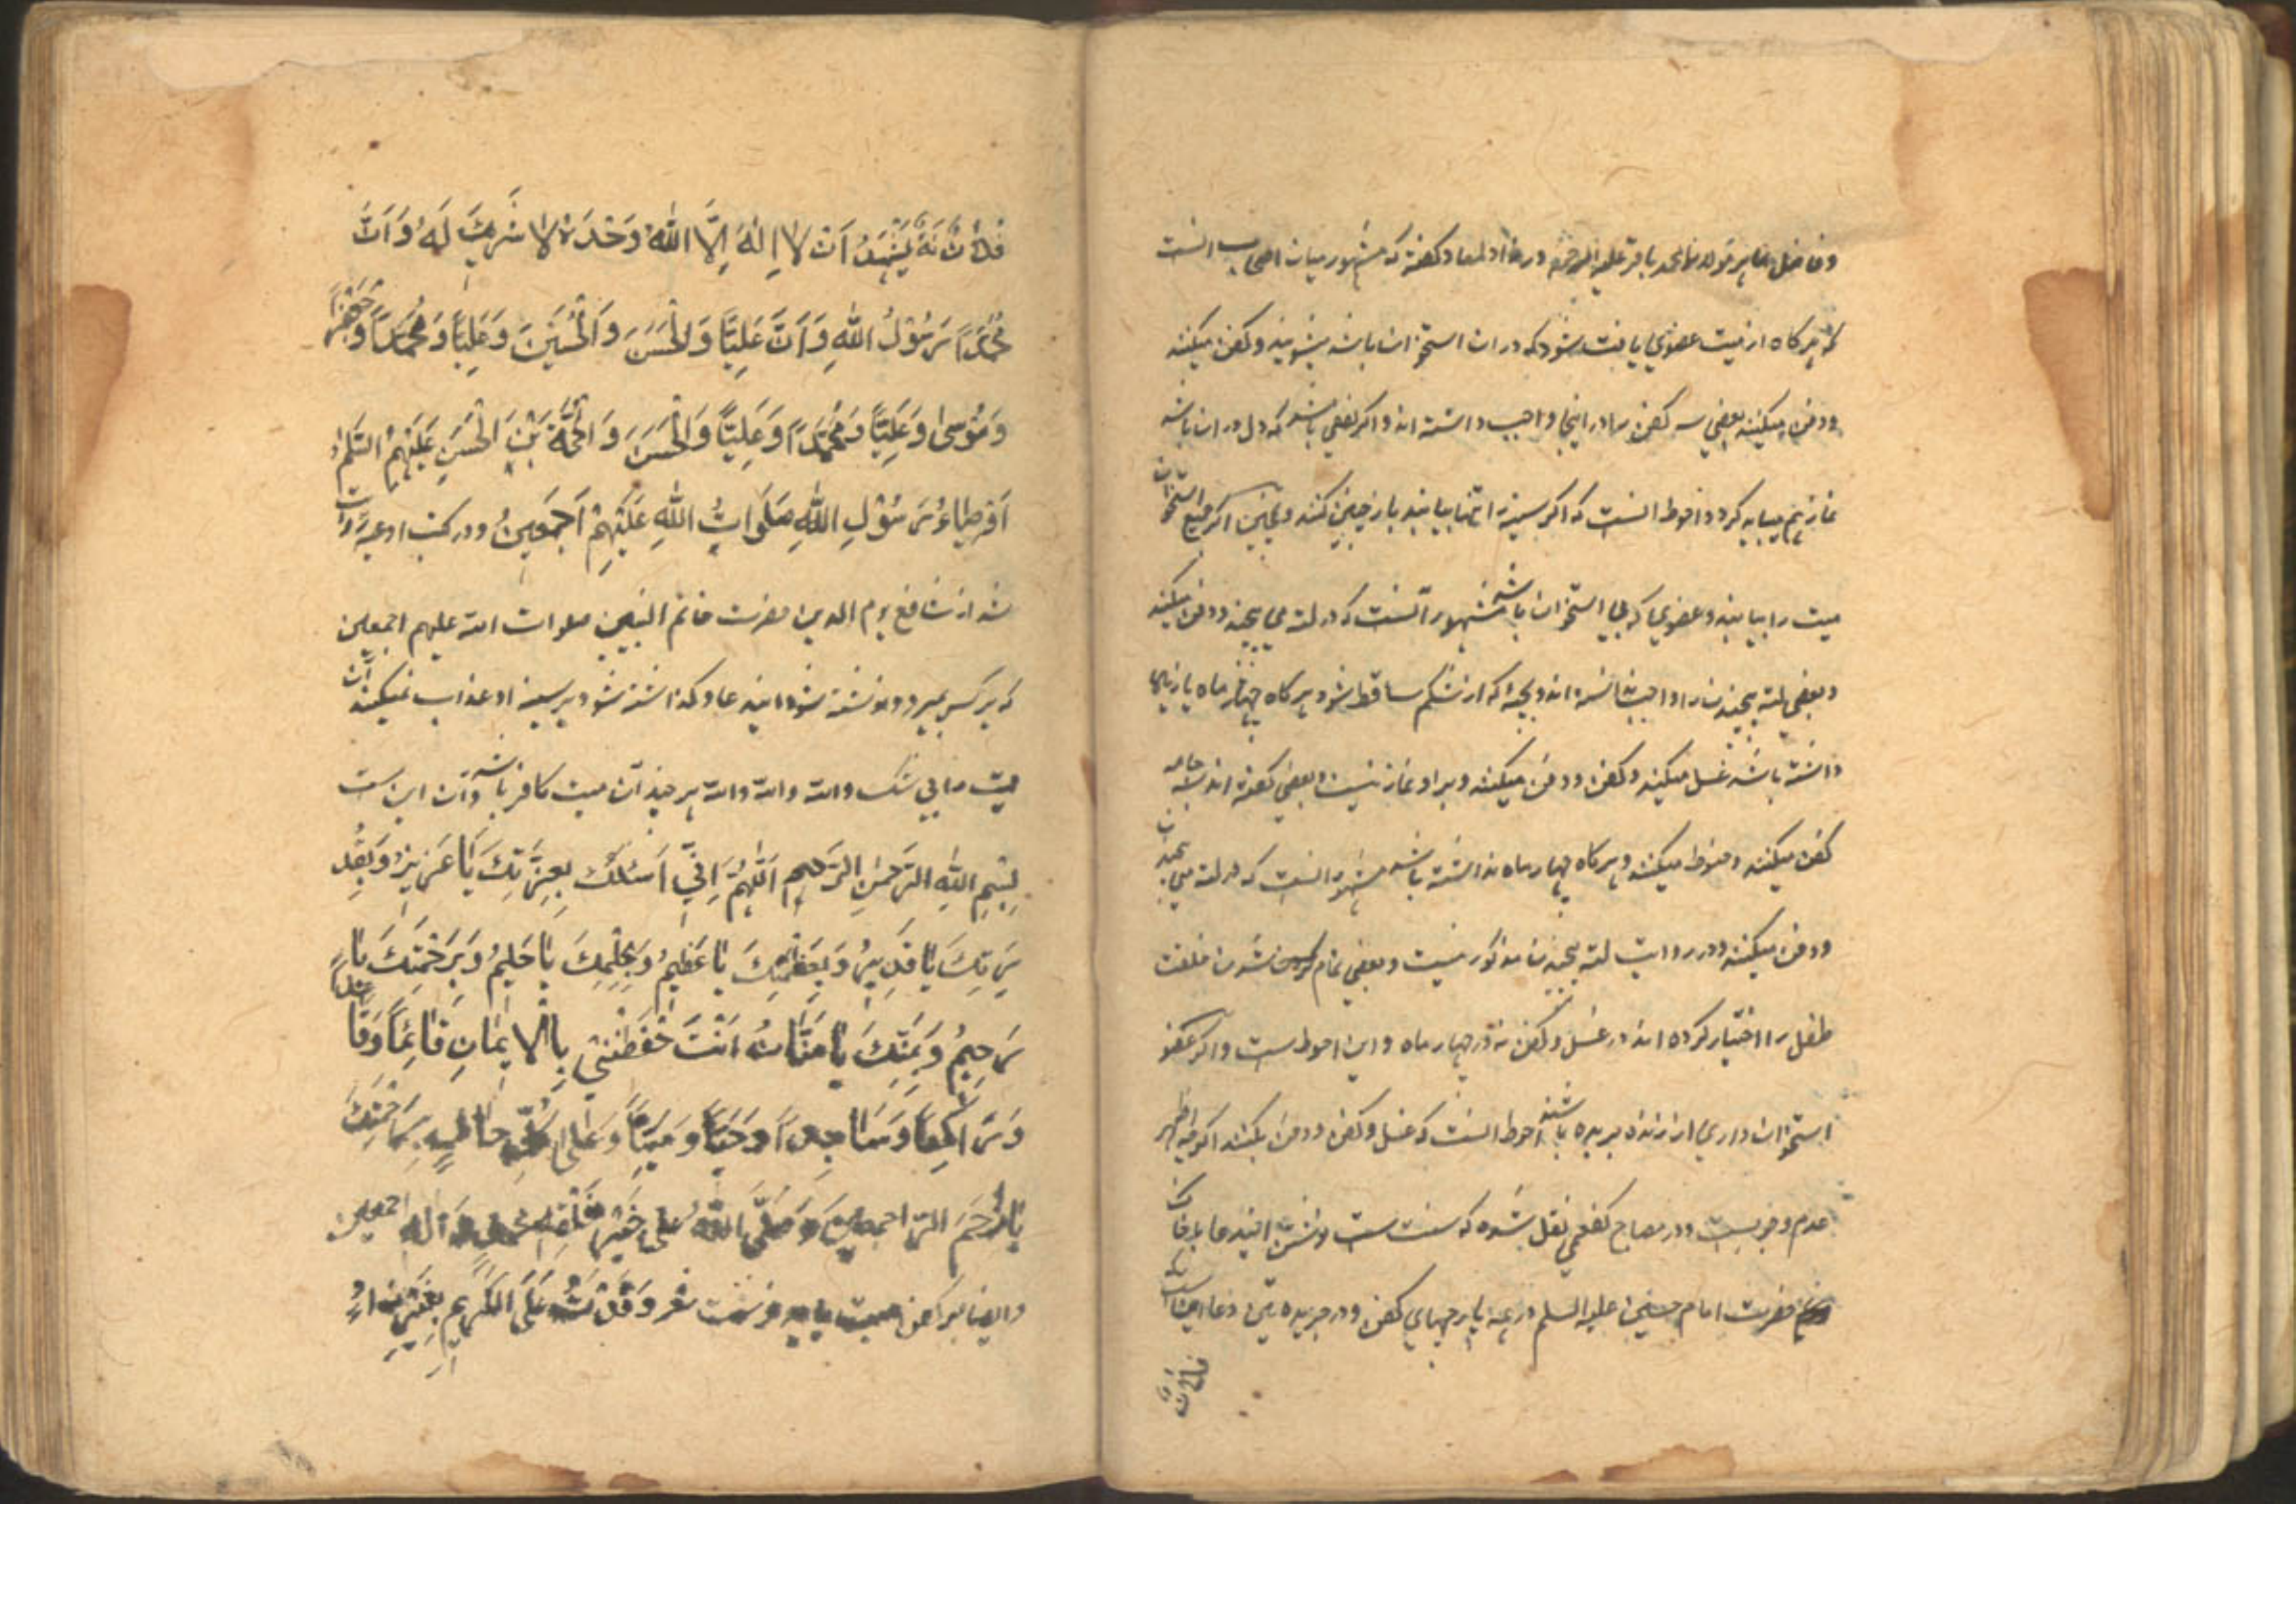 و فاضل ماهر مولانا محمد باقر علیه الرحمه در زاد المعاد گفته که مشهور میان اصحاب انست
که هرگاه از میت عضوی یافت شود که در ان استخوان باشد میشویند و کفن میکنند
و دفن میکنند بعضی سه کفن را در اینجا واجب داشته اند و اگر بعضی باشد که دل در ان باشد
نماز هم میباید کرد و احوط انست که اگر سینه را تنها بیابند باز چنین کنند و همچنین اگر جمیع استخوان
میت را بیابند و عضوی که بی استخوان باشد مشهور آنست که در لته می پیچند و دفن میکنند
و بعضی لته پیچیدن را واجب ندانسته اند و بچه که از شکم ساقط شود هرگاه چهار ماه یا زیاده
داشته باشد غسل میکنند و کفن و دفن میکنند و بر او نماز نیست و بعضی گفته اند بسه جامه
کفن میکنند و حنوط میکنند و هرگاه چهار ماه نداشته باشد مشهور انست که در لته می پیچند
و دفن میکنند و در روایت لته پیچیدن مذکور نیست و بعضی تمام شدن خلقت
طفل را اختیار کرده اند در غسل و کفن نه در چهار ماه و این احوط است و اگر عضو
استخوان داری از زنده بریده باشند احوط انست که غسل و کفن و دفن بکنند اگرچه اظهر
عدم وجوبست و در مصباح کفعمی نقل شده که سنت است نوشتن ایندعا بخاک
حضرت امام حسین علیه السلم در همه پارچهای کفن و در جریده تین دعا اینست
فلان
فلان نه یَشْهَدُ اَنْ لا اِلهَ اِلَّا اللهُ وَحْدَهُ لا شَرِیكَ لَهُ وَ اَنَّ
مُحَمَّداً رَسُوْلُ اللهِ وَ اَنَّ عَلِیّاً وَ الْحَسَنَ وَ الْحُسَیْنَ وَ عَلِیّاً وَ مُحَمَّداً وَ جَعْفَراً
وَ مُوْسیٰ وَ عَلِیّاً وَ مُحَمَّداً وَ عَلِیّاً وَ الْحَسَنَ وَ الْحُجَّةَ بْنَ الْحَسَنِ عَلَیْهِمُ السَّلمُ
اَوْصِیاءُ رَسُوْلِ اللهِ صَلَواتُ اللهِ عَلَیْهِمْ اَجْمَعِینَ و در کتب ادعیه روایت
شد از شافع یوم الدین حضرت خاتم النبیین صلوات الله علیهم اجمعین
که هر کس بمیرد و نوشته شود ایندعا و گذاشته شود بر سینه او عذاب نمیکنند آن
میت را بی شک والله والله والله هر چند آن میت کافر باشد و آن این ست
بِسْمِ اللهِ الرَّحْمنِ الرَّحِیمِ اَللّهُمَّ اِنّی اَسْئَلُكَ بِعِزَّتِكَ یَا عَزِیزُ وَ بِقُدْ
رَتِكَ یَا قَدِیرُ وَ بِعَظَمَتِكَ یَا عَظِیمُ وَ بِحِلْمِكَ یَا حَلِیمُ وَ بِرَحْمَتِكَ یَا
رَحِیمُ وَ بِمَنِّكَ یَا مَنَّانُ اَنْتَ حَفِظْتَنِی بِالْاِیمَانِ قَائِماً وَ قَاعِداً
وَ رَاكِعاً وَ سَاجِداً وَ حَیّاً وَ مَیِّتاً وَ عَلی كُلِّ حَالٍ بِرَحْمَتِكَ
یَا اَرْحَمَ الرّاحِمِینَ وَ صَلَّی اللهُ عَلی خَیْرِ خَلْقِهِ مُحَمَّدٍ وَ آلِهِ اجمعین
و ایضا بر کفن میت باید نوشت شعر وَفَدْتُ عَلَی الْکَرِیمِ بِغَیْرِ زَادٍ